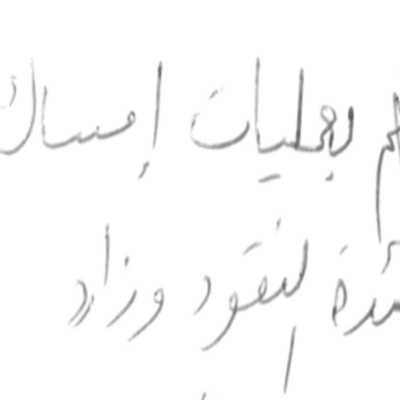 بعمليات إمساك
النقود وزاد